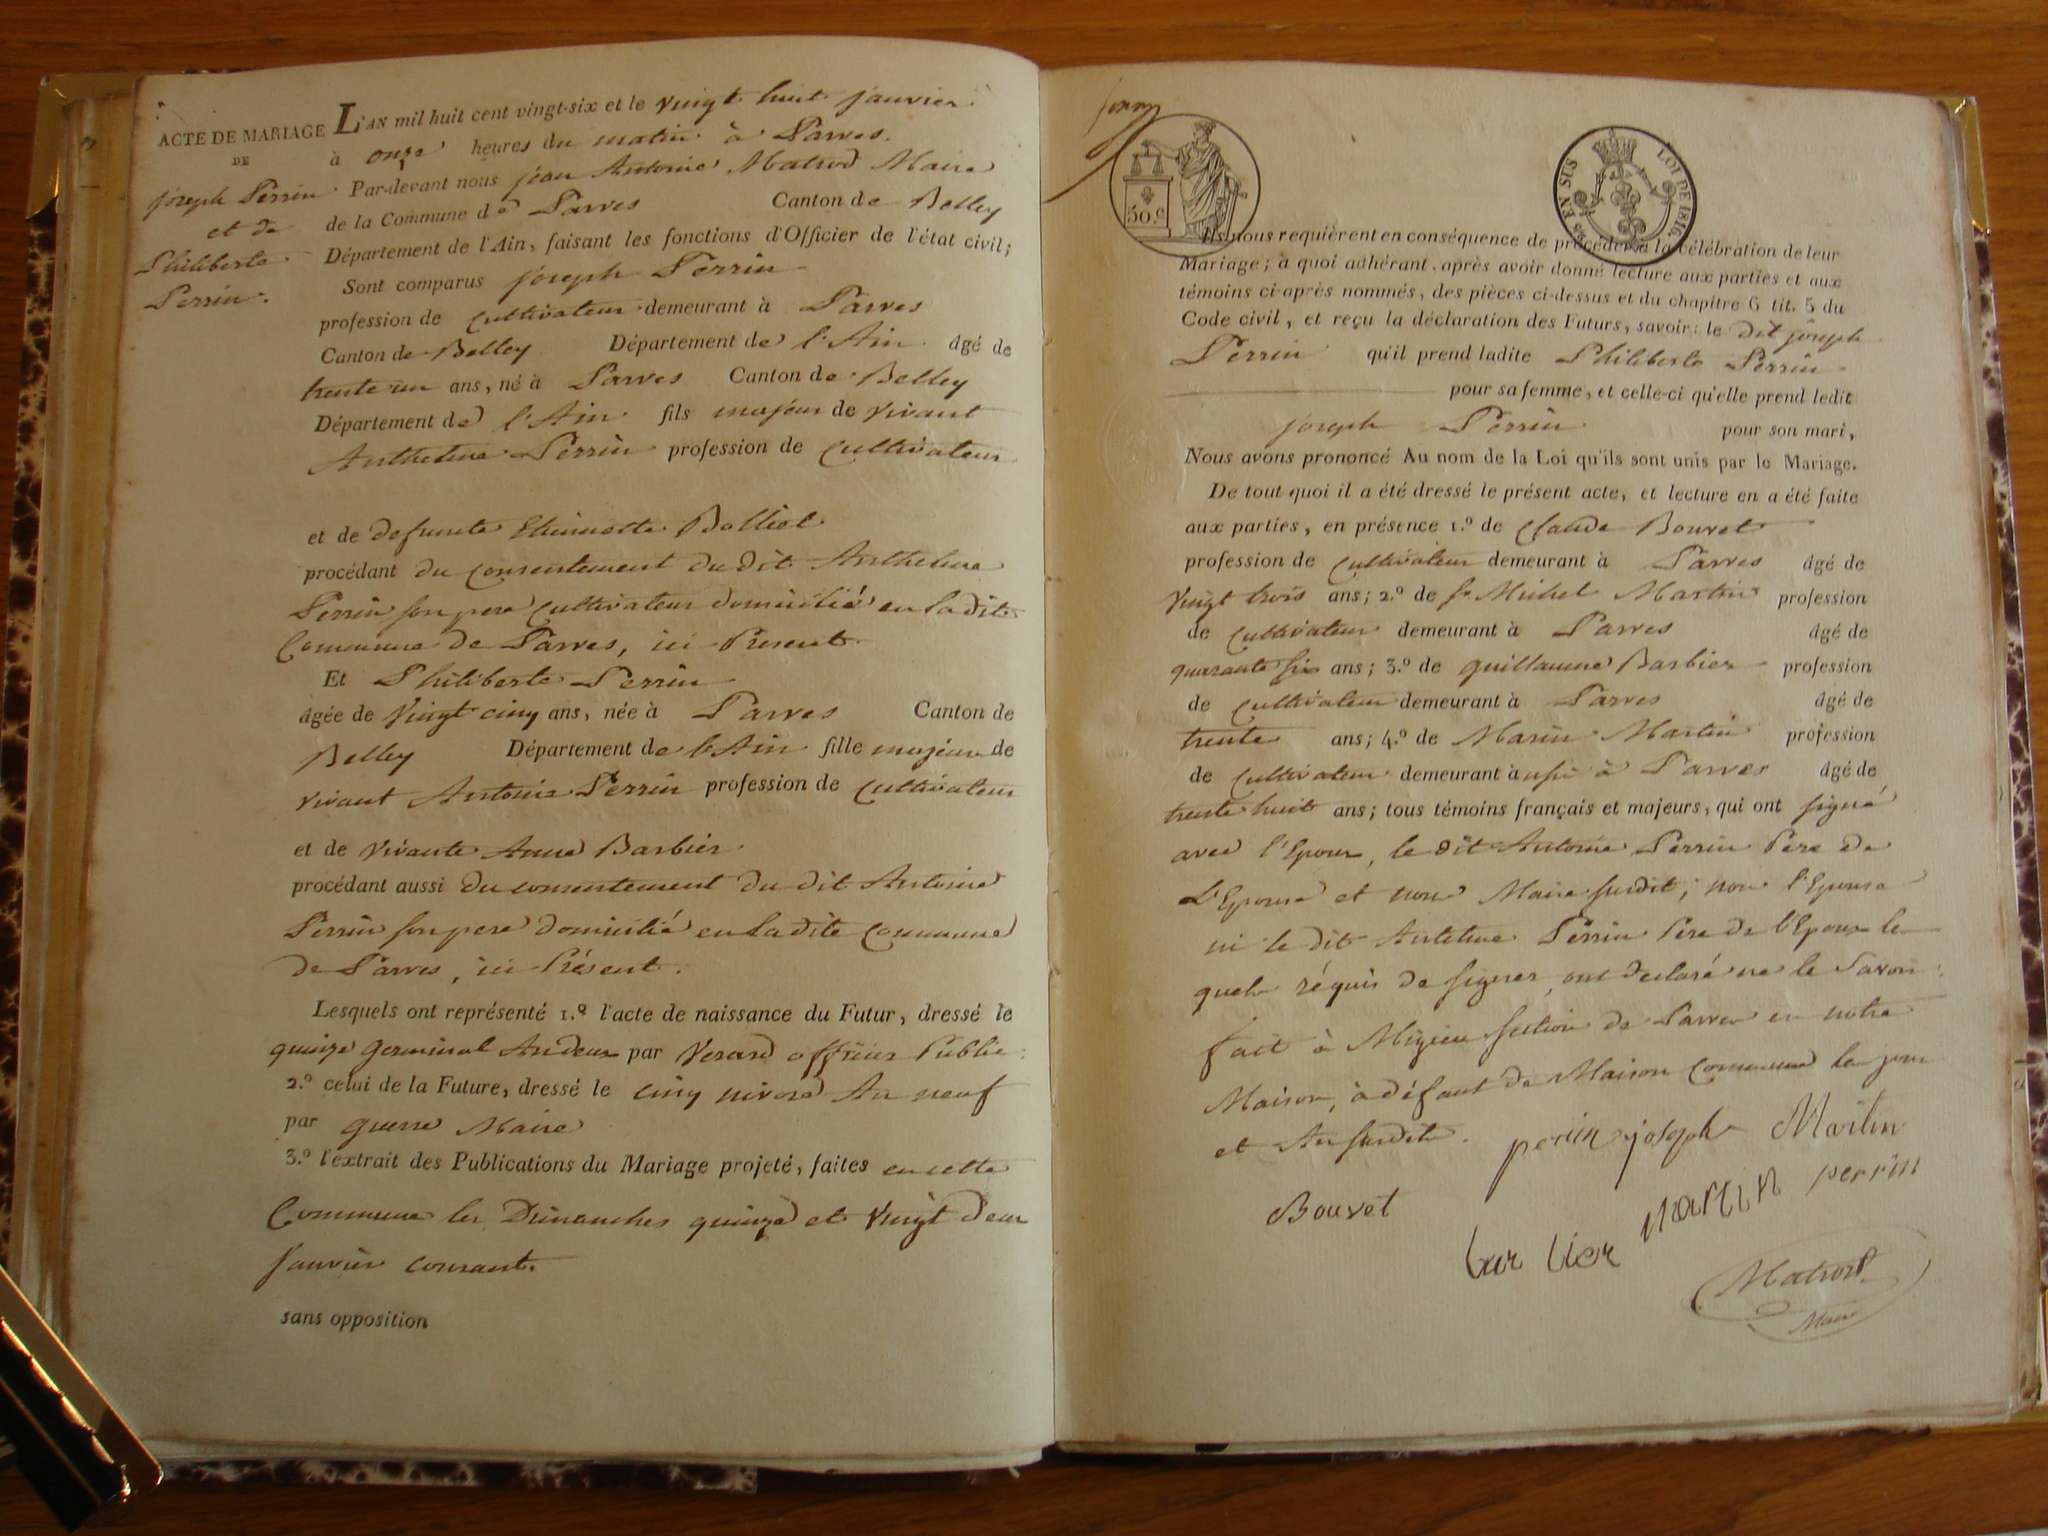 ACTE DE MARIAGE
DE
joseph Perrin
et de
Philiberte
Perrin.
L'AN mil huit cent vingt-six et le vingt huit janvier
à onze heures du matin à Parves.
Par-devant nous jean Antoine Matrod Maire
de la Commune de Parves Canton de Belley
Département de l'Ain, faisant les fonctions d'Officier de l'état civil;
Sont comparus joseph Perrin
profession de cultivateur demeurant à Parves
Canton de Belley Département de l'Ain âgé de
trente un ans, né à Parves Canton de Belley
Département de l'Ain fils majeur de vivant
Anthelme Perrin profession de cultivateur
et de defunte Etiennette Bolliet
procédant du consentement du dit Anthelme
Perrin son pere cultivateur domicilié en la dite
Commune de Parves, ici Present.
Et Philiberte Perrin
âgée de vingt cinq ans, née à Parves Canton de
Belley Département de l'Ain fille majeure de
vivant Antoine Perrin profession de cultivateur
et de vivante Anne Barbier
procédant aussi du consentement du dit Antoine
Perrin son pere domicilié en la dite commune
de Parves, ici Présent.
Lesquels ont représenté 1.º l'acte de naissance du Futur, dressé le
quinze Germinal An deux par Verard officier Public
2.º celui de la Future, dressé le cinq nivose An neuf
par guerre Maire
3.º l'extrait des Publications du Mariage projeté, faites en cette
Commune les Dimanches quinze et vingt deux
janvier courant.
sans opposition
50.c
EN SUS
LOI DE 1816
Ils nous requièrent en conséquence de procéder à la célébration de leur
Mariage; à quoi adhérant, après avoir donné lecture aux parties et aux
témoins ci-après nommés, des pièces ci-dessus et du chapitre 6 tit. 5 du
Code civil, et reçu la déclaration des Futurs, savoir: le dit joseph
Perrin qu'il prend ladite Philiberte Perrin
pour sa femme, et celle-ci qu'elle prend ledit
joseph Perrin pour son mari,
Nous avons prononcé Au nom de la Loi qu'ils sont unis par le Mariage.
De tout quoi il a été dressé le présent acte, et lecture en a été faite
aux parties, en présence 1.º de Claude Bouvet
profession de cultivateur demeurant à Parves âgé de
vingt trois ans; 2.º de Michel Martin profession
de cultivateur demeurant à Parves âgé de
quarante six ans; 3.º de guillaume Barbier profession
de cultivateur demeurant à Parves âgé de
trente ans; 4.º de Marin Martin profession
de cultivateur demeurant à à Parves âgé de
trente huit ans; tous témoins français et majeurs, qui ont signé
avec l'Epoux, le dit Antoine Perrin Père de
L'Epouse et nous Maire susdit; non l'Epouse
ni le dit Antelme Perrin Père de l'Epoux les
quels réquis de signer, ont declaré ne le Savoir.
fait à Mizieu section de Parves en notre
Maison, à défaut de Maison Commune les jour
et An susdits.
perrin joseph Martin
Bouvet Martin perrin
bar bier
Matrod
Maire